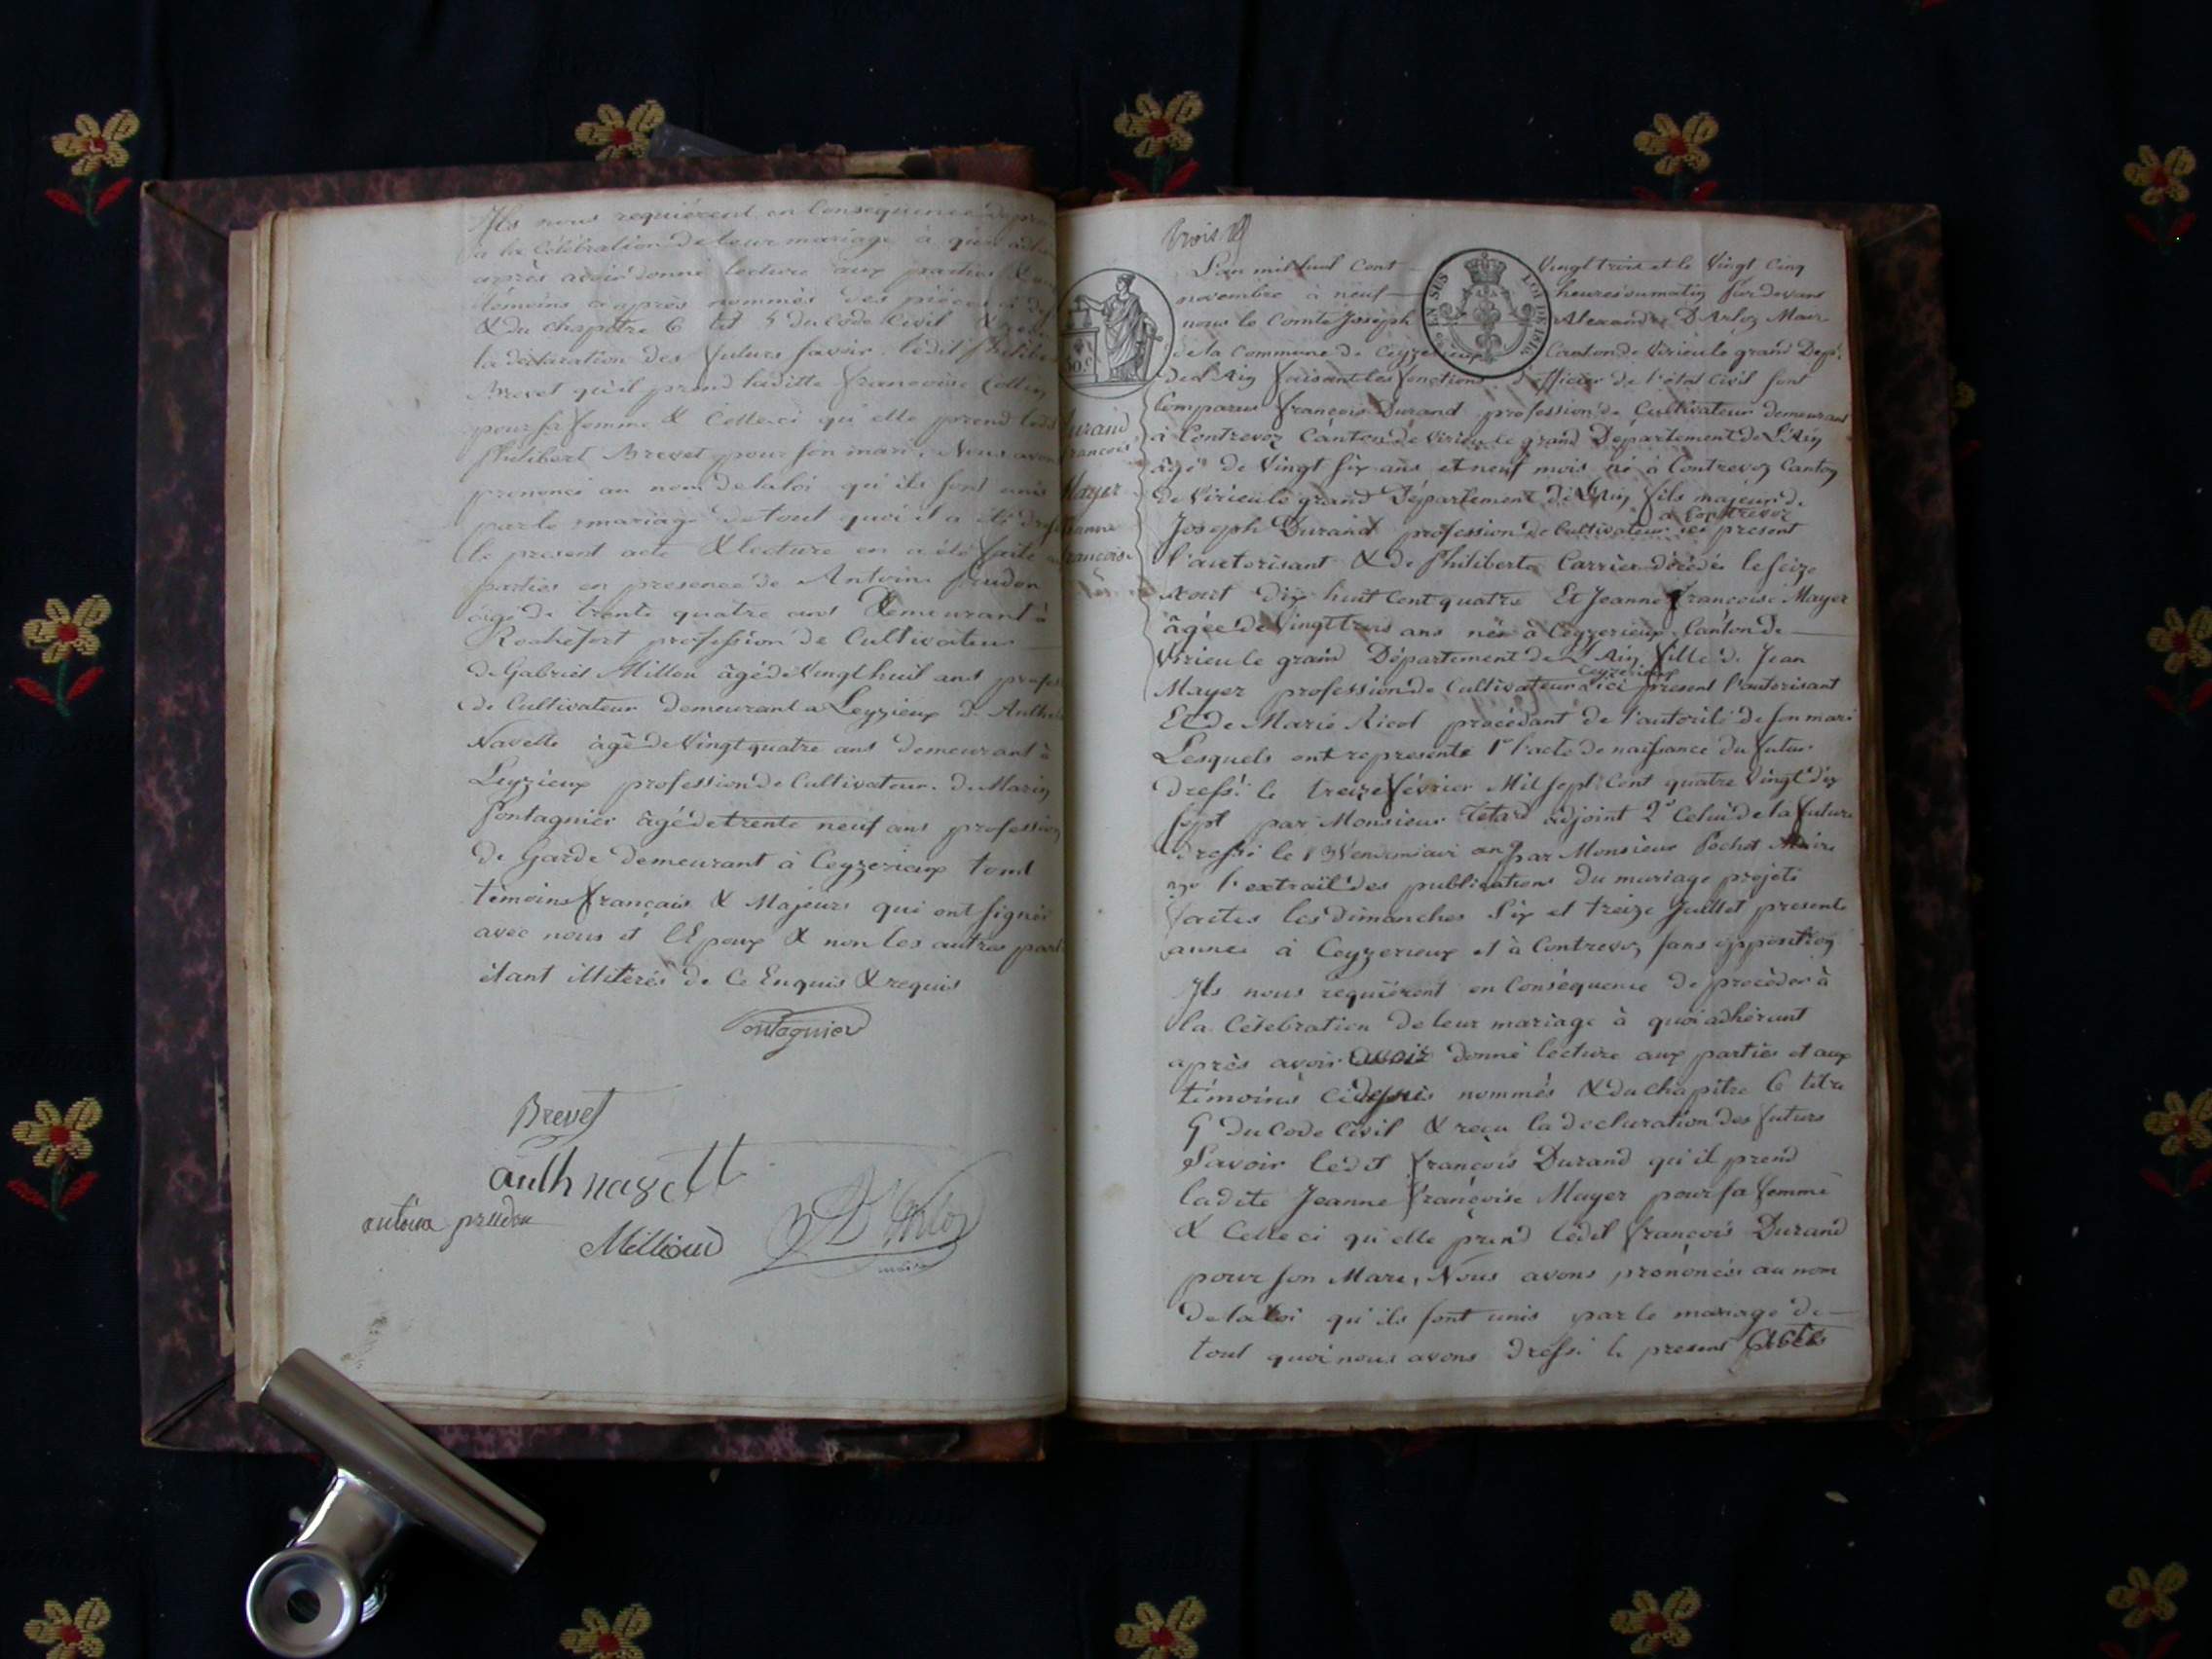 Ils nous requièrent en Conséquence de pro
à la Célébration de leur mariage à quoi adhé
après avoir donné lecture aux parties &
témoins cy après nommés des pièces
& du chapitre 6 tit 5 du Code Civil &
la déclaration des futurs savoir ledit Philibe
Brevet qu'il prend laditte françoise Collin
pour sa femme & Celle ci qu'elle prend ledit
Philibert Brevet pour son mari, Nous avons
prononcé au nom de la loi qu'ils sont unis
par le mariage de tout quoi il a été dressé
le present acte & lecture en a été faite a
parties en presence de Antoine prudon
âgé de trente quatre ans demeurant à
Rochefort profession de Cultivateur
de Gabriel Milliou âgé de Vingt huit ans profes
de Cultivateur demeurant a Leyzieux d. Anthe
Navette âgé de Vingt quatre ans demeurant à
Leyzieux profession de Cultivateur. de Marin
pontagnier âgé de trente neuf ans profession
de Garde demeurant à Ceyzerieux tout
témoins français & Majeurs qui ont signés
avec nous et l'Epoux & non les autres parti
étant illitérés de Ce Enquis & requis
Pontagnier
Brevet
anth navett
antoine prudon
Millioud
D'Arloz
maire
trois
L'an mil huit Cent Vingt trois et le Vingt Cinq
novembre à neuf heures du matin par devans
nous le Comte Joseph Alexandre D'Arloz Maire
de la Commune de Ceyzerieux Canton de Virieu le grand Dep.
de l'Ain faisant les fonctions d'officier de l'état Civil sont
Comparus françois Durand profession de Cultivateur demeurant
à Contrevoz Canton de Virieu le grand Département de L'Ain
âgé de Vingt six ans et neuf mois né à Contrevoz Canton
de Virieu le grand Département de L'Ain fils majeur de
à Contrevoz
Joseph Durand profession de Cultivateur ici present
l'autorisant & de Philiberte Carrier décédée le seize
aout dix huit Cent quatre Et Jeanne françoise Mayer
âgée de Vingt trois ans née à Ceyzerieux Canton de
Virieu le grand Département de L'Ain fille de Jean
Ceyzerieux
Mayer profession de Cultivateur à ici present l'autorisant
Et de Marie Ricol procédant de l'autorité de son mari
Lesquels ont représenté 1° l'acte de naissance du futur
dressé le treize février Mil sept Cent quatre Vingt dix
sept par Monsieur Tetard adjoint 2° Celui de la future
dressé le 13 Vendemiaire an par Monsieur Pochet Maire
3° l'extrait des publications du mariage projeté
faites les dimanches Six et treize Juillet presente
année à Ceyzerieux et à Contrevoz sans opposition
Ils nous requièrent en Conséquence de procèder à
la Célebration de leur mariage à quoi adhérant
après avoir avoir donné lecture aux parties et aux
témoins Ci depuis nommés & du chapitre 6 titre
5 du Code Civil & reçu la declaration des futurs
Savoir ledit françois Durand qu'il prend
ladite Jeanne françoise Mayer pour sa femme
& Celle ci qu'elle prend ledit françois Durand
pour son Mari, Nous avons prononcés au nom
de la loi qu'ils sont unis par le mariage de
tout quoi nous avons dressé le present Acte
Durand
françois
Mayer
Jeanne
françoise
EN SUS
LOI DE 1816